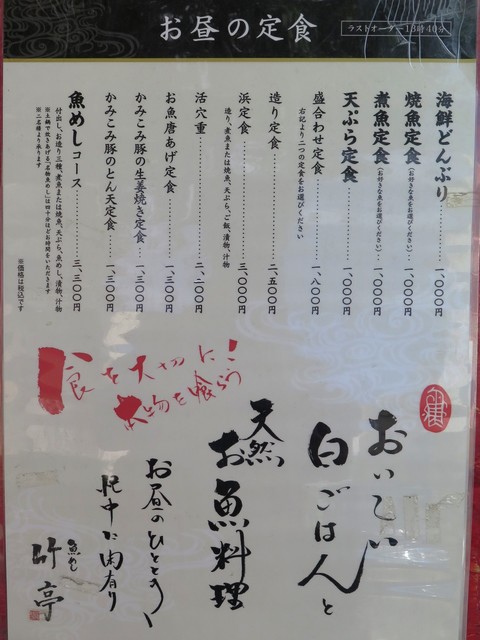 お昼の定食
ラストオーダー13時40分
海鮮どんぶり 一、〇〇〇円
焼魚定食(お好きな魚をお選びください) 一、〇〇〇円
煮魚定食(お好きな魚をお選びください) 一、〇〇〇円
天ぷら定食 一、〇〇〇円
盛合わせ定食 一、八〇〇円
右記より二つの定食をお選びください
造り定食 二、五〇〇円
浜定食 三、〇〇〇円
造り、煮魚または焼魚、天ぷら、ご飯、漬物、汁物
活穴重 二、二〇〇円
お魚唐あげ定食 一、三〇〇円
かみこみ豚の生姜焼き定食 一、三〇〇円
かみこみ豚のとん天定食 一、三〇〇円
魚めしコース 三、三〇〇円
付出し、お造り三種、煮魚または焼魚、天ぷら、魚めし、漬物、汁物
※土鍋で炊きあげる「名物魚めし」は四十分ほどお時間をいただきます
※二名様より承ります
※価格は税込です
食を大切に!
本物を喰らう
おいしい
白ごはんと
天然
お魚料理
お昼のひととき、
忙中に閑有り
魚めし
竹亭